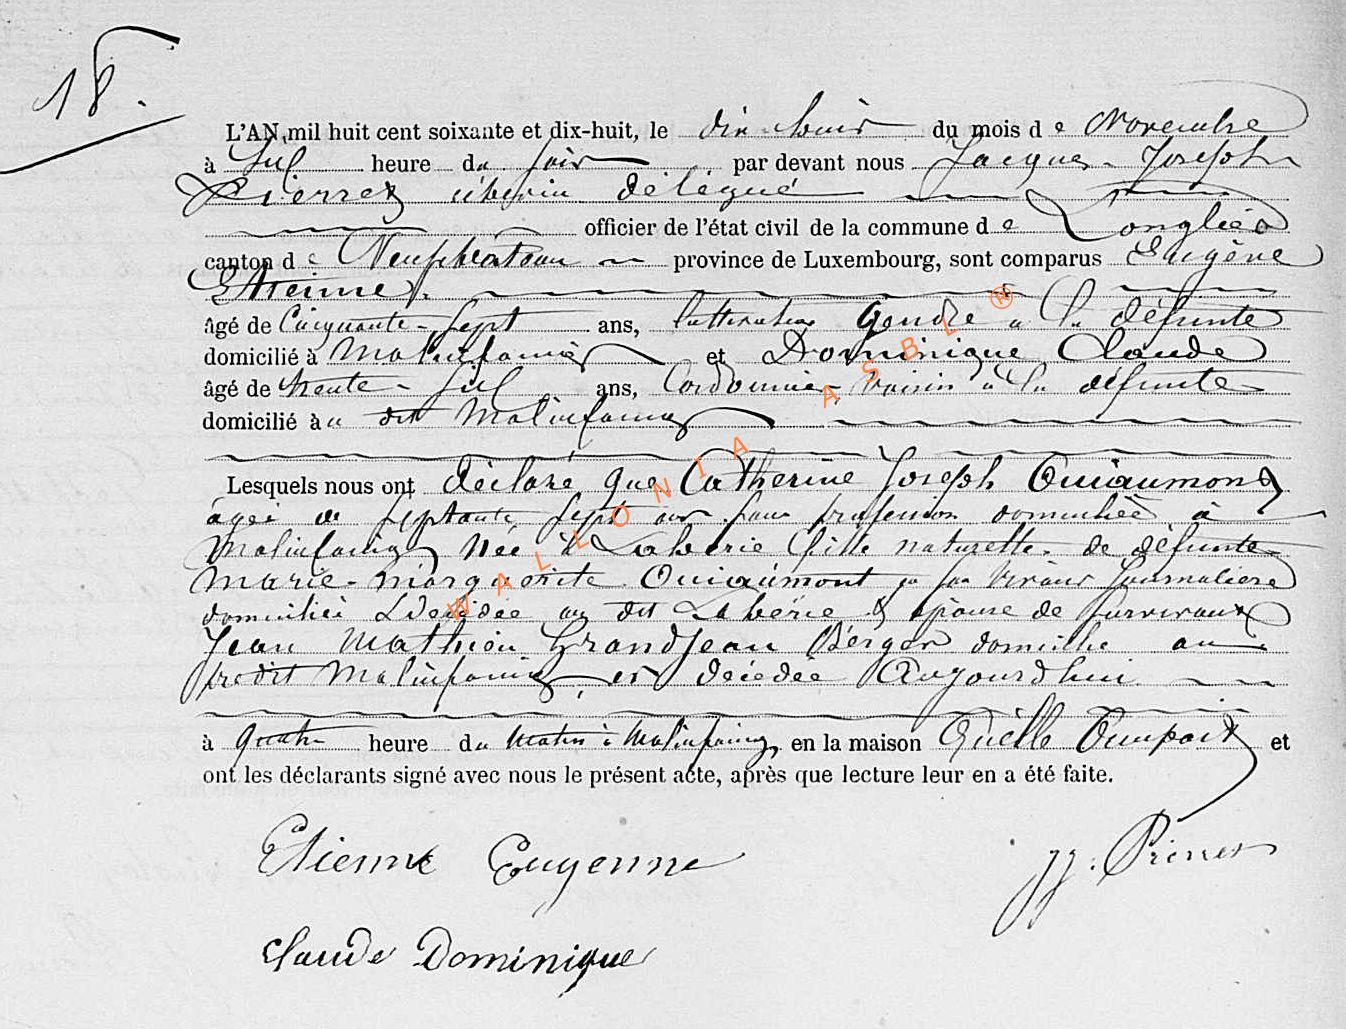 18.
L'AN mil huit cent soixante et dix-huit, le dix-huit du mois de Novembre
à Six heure du soir par devant nous Jacques-Joseph
Pierret échevin délégué
officier de l'état civil de la commune de Longlier
canton de Neufchâteau province de Luxembourg, sont comparus Eugène
Etienne
âgé de Cinquante-Sept ans, cultivateur gendre à la défunte
domicilié à Malinfaing et Dominique Claude
âgé de trente-Six ans, Cordonnier voisin à la défunte
domicilié à dit Malinfaing
Lesquels nous ont déclaré que Catherine Joseph Ouiaumont
agée de Septante Sept ans sans profession domiciliée à
Malinfaing Née à Laherie fille naturelle de défunte
Marie-Marguerite Ouiaumont en son vivant Journaliere
domiciliée & décédée au dit Laherie & épouse de survivant
Jean Mathieu Grandjean Berger domicilié au
predit Malinfaing est décédée Aujourd'hui
à quatre heure du Matin à Malinfaing en la maison Qu'elle Occupait et
ont les déclarants signé avec nous le présent acte, après que lecture leur en a été faite.
Etienne Eugenne
JJ. Pierret
Claude Dominique
WALLONIA ASBL ®